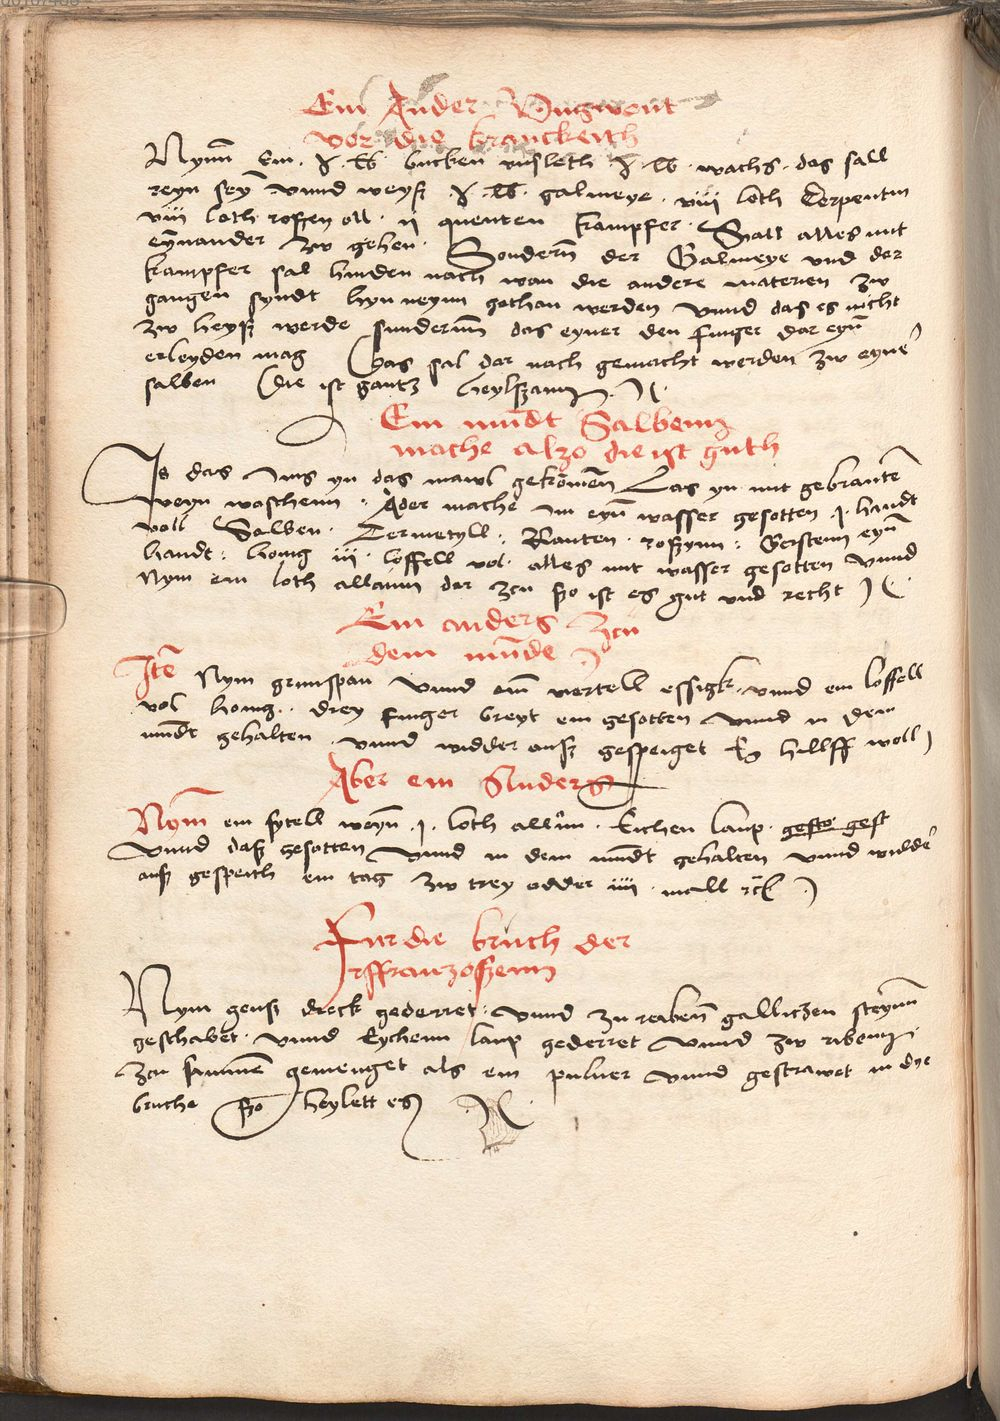 Ein Ander Vngwent
vor die kranckeith
Nymm Ein . lb . bucken vnsleth . lb . wachs . das sall
reyn sey vnnd weyß . lb . galmeye . viii loth Terpentin
viii loth roßen oll . ii quenten kampfer . Sall alles mit
eynander zw gehen . Sondern der Galmeye vnd der
kampfer sal hinden nach wan die andere materien zw
gangen syndt hyn neynn gethan werden vnnd das es nicht
zw heyß werde sundernn das eyner den finger dar eyn
erleyden mag Das sal dar nach gemacht werden zw eyne
salben Die ist gantz heylszam
Ein mundt Salbenn
mache alzo die ist guth
Is das Ims yn das mawl gekomen Las yn mit gebranten
weyn waschenn . Ader mache Im eyn wasser gesotten . j . handt
voll Salben . Tormetyll . Rauten . roßynn : Gerstenn eyn
handt : honig iii loffell vol . alles mit wasser gesotten vnnd
Nym ein loth allaun dar zcu ßo ist es gut vnd recht
Ein anders zcu
dem munde
Ite Nym grunspan vnnd ein vertell essigk vnnd ein loffell
vol honig . drey finger breyt ein gesotten vnnd in dem
mundt gehalten vnnd widder auß gespeiget Es hillff woll
Aber ein Anders
Nym ein sytell weyn . j . loth allun . Eichen laup . gesto gest
vnnd daß gesotten vnnd in dem mundt gehalten vnnd widde
auß gespeith ein tag zw trey odder iiii mall
Fur die bruch der
ffranzoßenn
Nym genß dreck gederret . vnnd zu reiben galliczen steynn
geschabet . vnnd Eychenn laup gederret vnnd zw ribenn
zcu sammen gemenget als ein puluer vnnd gestrawet in dye
bruche ßo heylett es